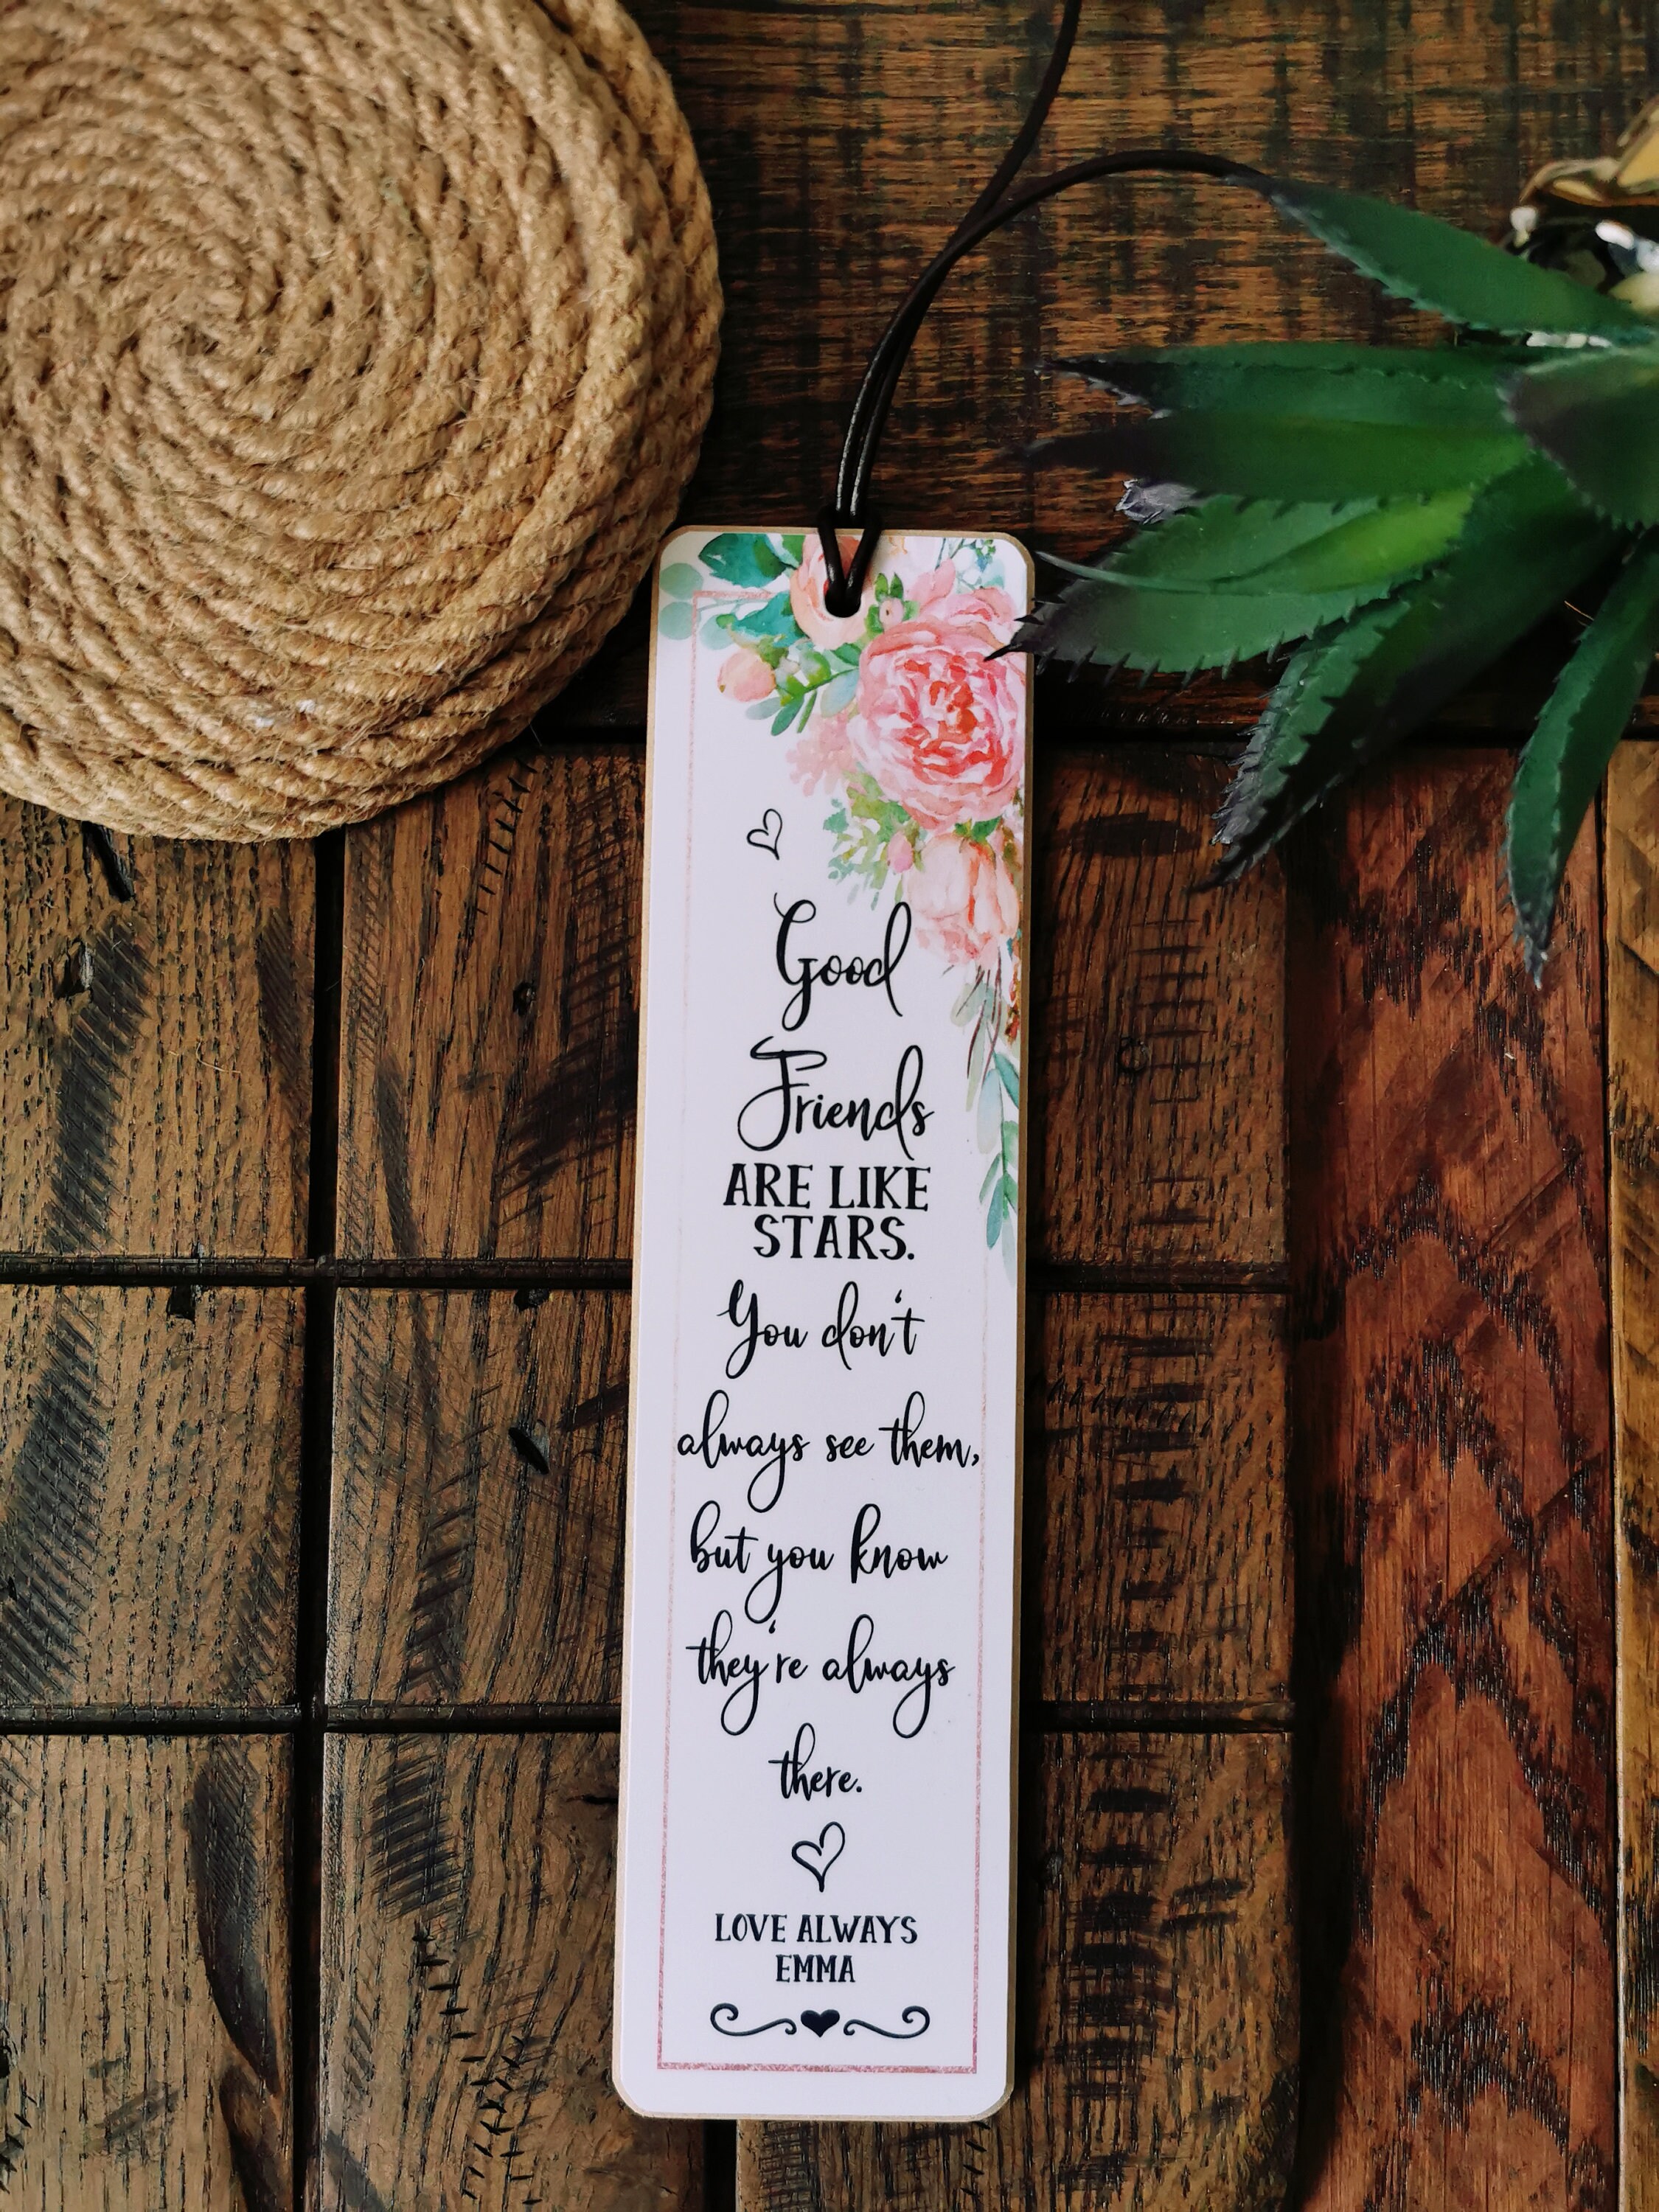 Good
Friends
ARE LIKE
STARS.
You don't
always see them,
but you know
they're always
there.
LOVE ALWAYS
EMMA